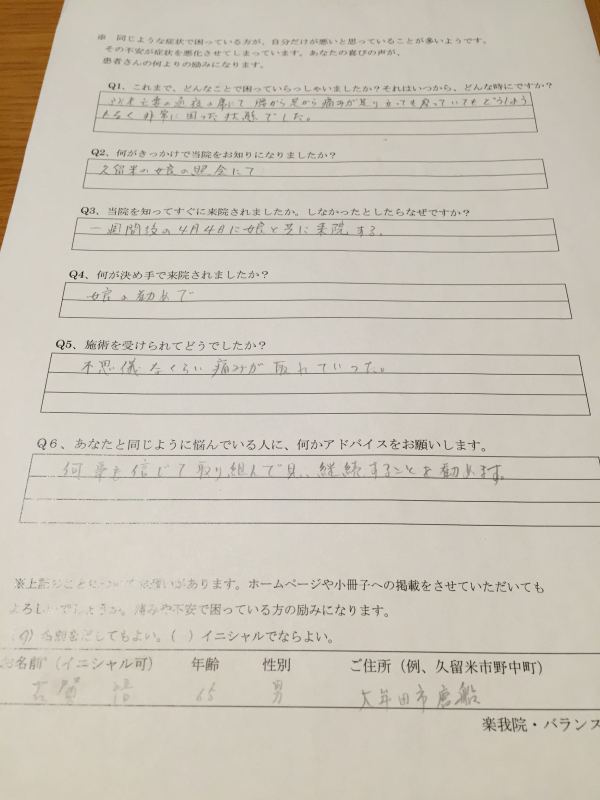 ※　同じような症状で困っている方が、自分だけが悪いと思っていることが多いようです。
その不安が症状を悪化させてしまっています。あなたの喜びの声が、
患者さんの何よりの励みになります。
Q1、これまで、どんなことで困っていらっしゃいましたか？それはいつから、どんな時にですか？
腰から足から痛みが足り立っても座っていてもどうしよう
もなく非常に困った状態でした。
Q2、何がきっかけで当院をお知りになりましたか？
久留米の娘の照会にて
Q3、当院を知ってすぐに来院されましたか。しなかったとしたらなぜですか？
一週間後の4月4日に娘と共に来院する。
Q4、何が決め手で来院されましたか？
娘の勧めで
Q5、施術を受けられてどうでしたか？
不思儀なくらい痛みが取れていった。
Q６、あなたと同じように悩んでいる人に、何かアドバイスをお願いします。
何事も信じて取り組んで見、継続することを勧めます。
※上記のことについてお願いがあります。ホームページや小冊子への掲載をさせていただいても
よろしいでしょうか。痛みや不安で困っている方の励みになります。
名前を出してもよい。(　) イニシャルでならよい。
お名前 (イニシャル可)　年齢　性別　ご住所（例、久留米市野中町）
古賀　65　男　大牟田市唐船
楽我院・バランス